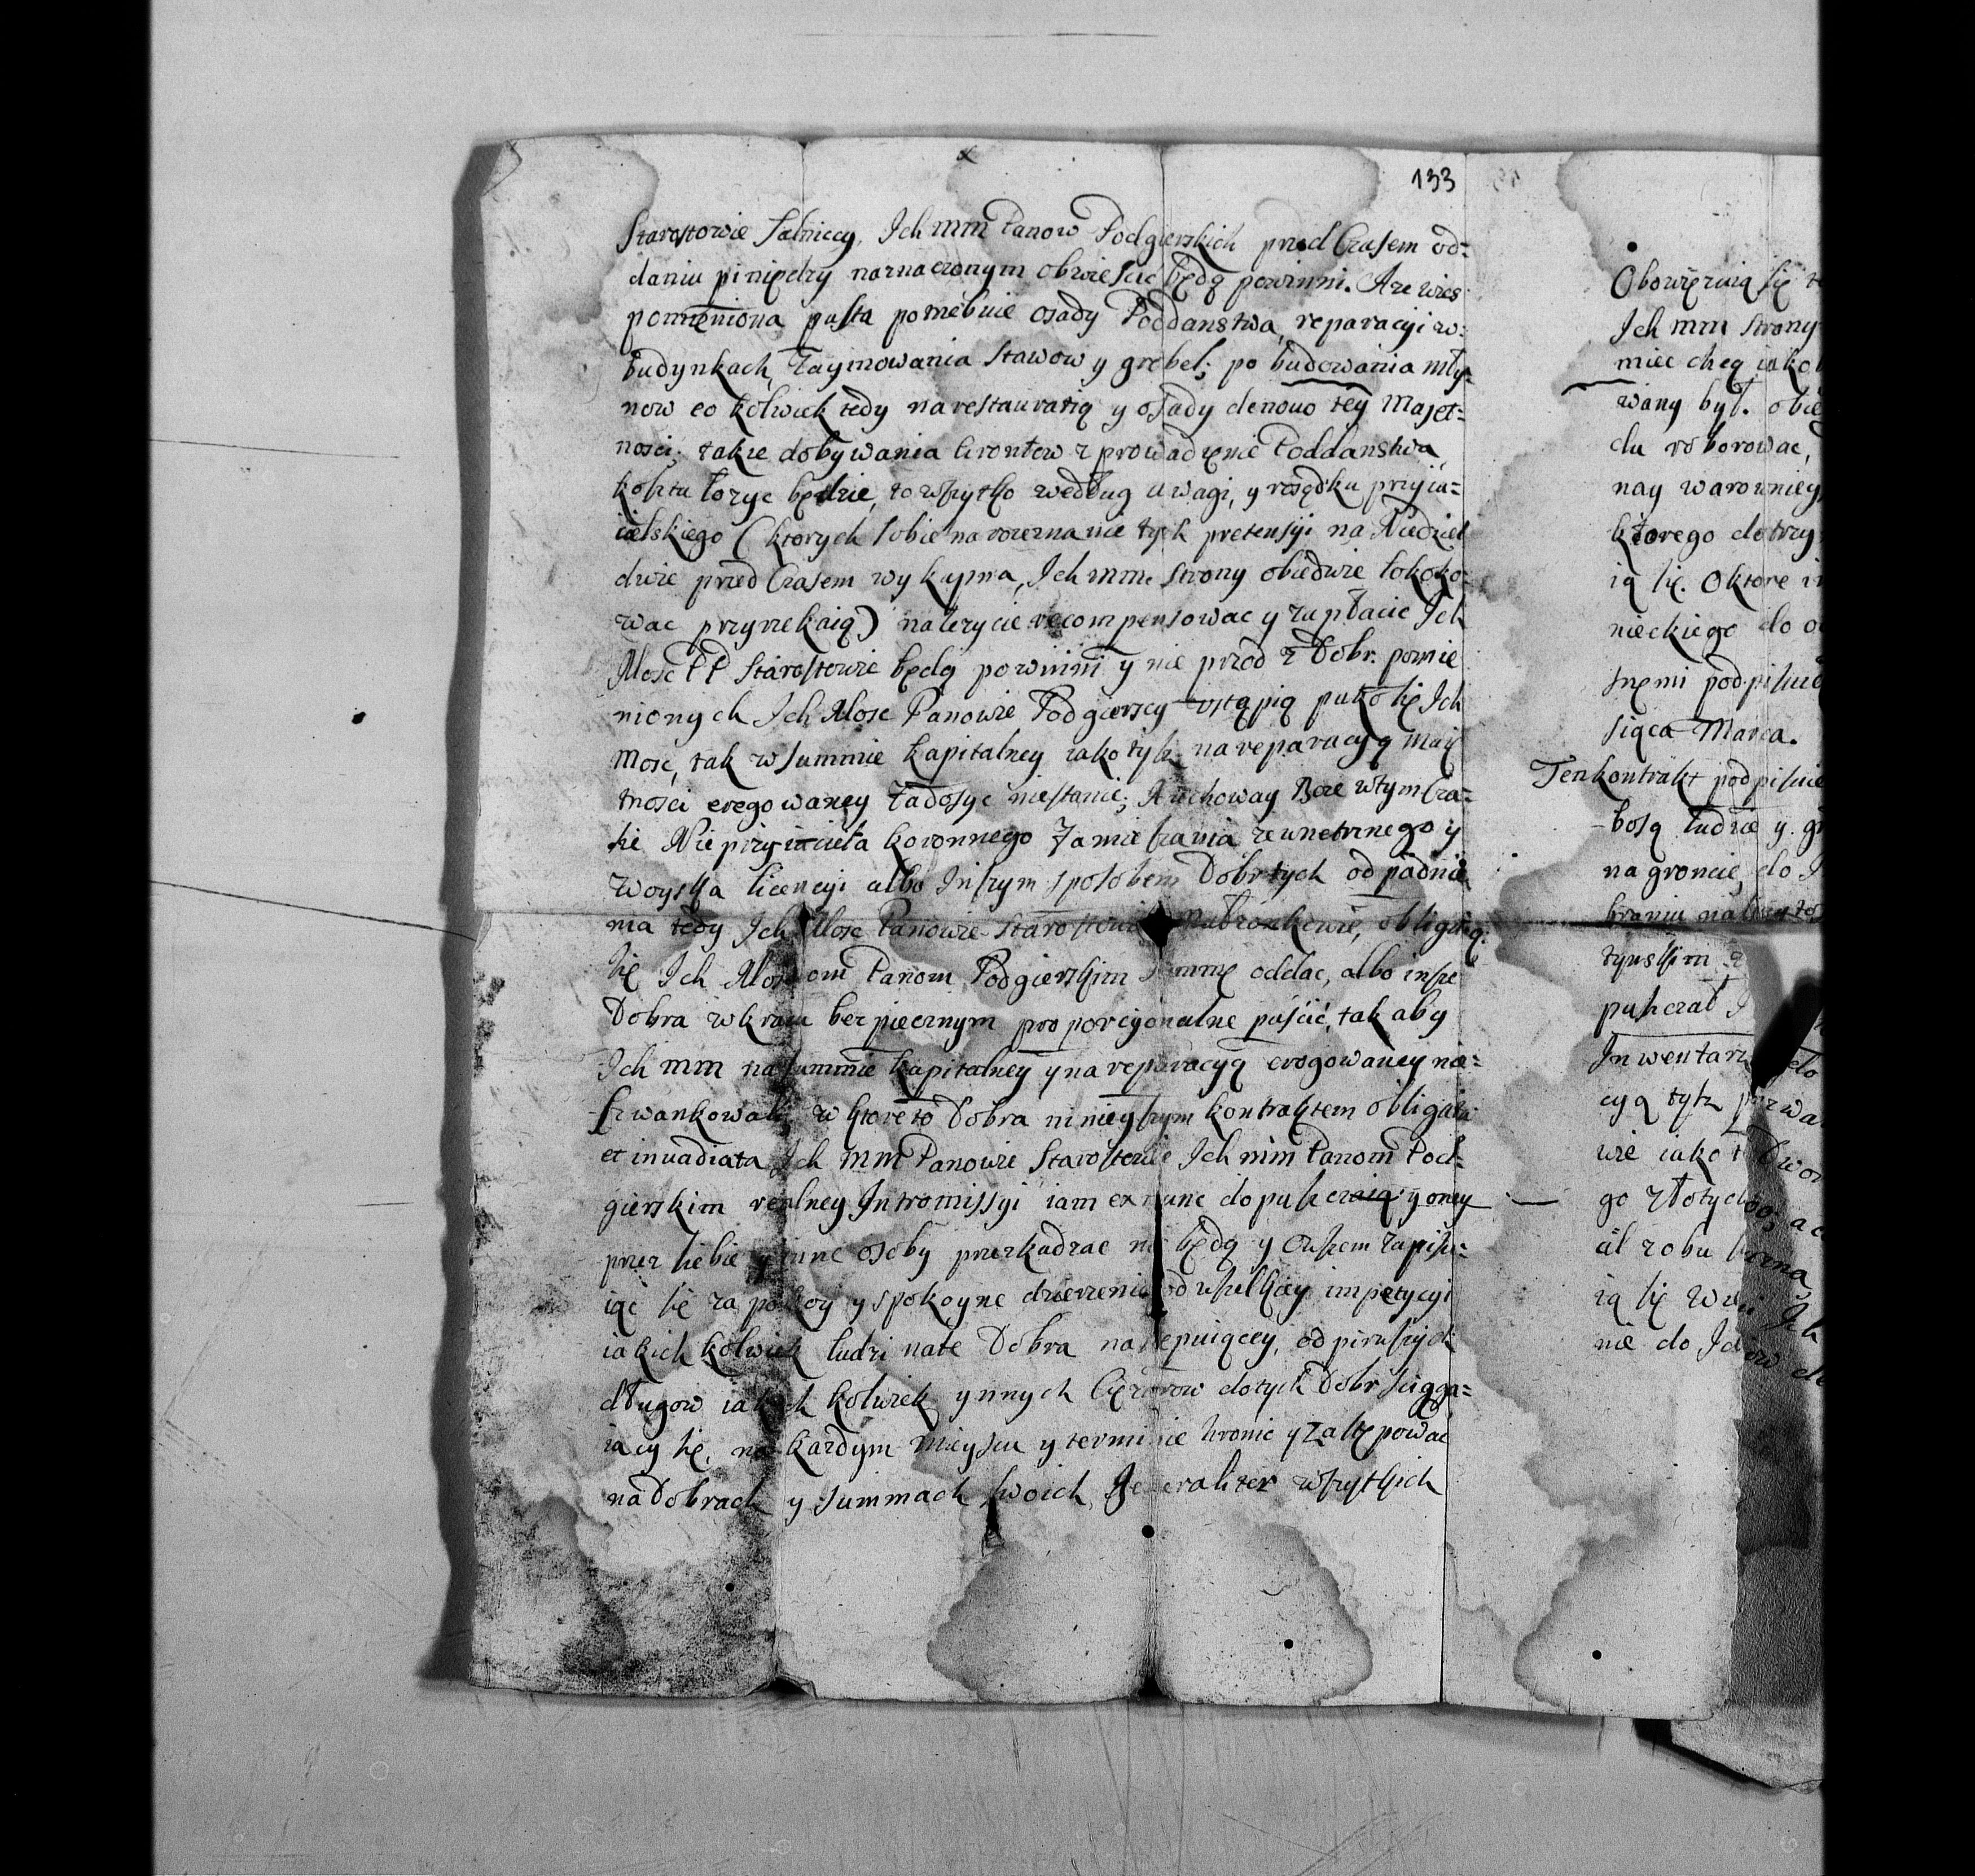 133
Starostowie Salniccy, Ich mm Panow Podgierskich przed Czasem od=
daniu piniędzy naznaczonym obwiescic będą powinni. A ze wies
pomieniona pusta potrzebuie osady Poddanstwa, reparacyi w=
budynkach, Zaymowania Stawow y grobel; po budowania mły=
now co kolwiek tedy na restauratią y osady denouo tey Majet=
nosci; takze dobywania Grontow z prowadzenie Poddanstwa,
kosztu łozyc będzie, to wszytko według uwagi, y rosądku przyia=
cielskiego (ktorych sobie na rozeznanie tych pretensyi na Niedziel
dwie przed Czasem wykupna, Ich mm. Strony obiedwie lokoko=
wac przyrzekaią) nalezycie recompensowac y zapłacic Ich
Mosc PP Starostowie będą powinni y nie przod z Dobr. pomie
nionych Ich Mosc Panowie Podgierscy vstąpią puko się Ich
Mosc, tak w Summie kapitalney iako tysz na reparacyą Maię
tnosci erogowaney Zadosyc niestanie; A uchoway Boze w tym Cza=
sie Nieprzyiaciela koronnego Zamieszania zewnetrznego y
woyska licencyi albo Inszym sposobem Dobr tych odpadnie
nia tedy Ich Mosc Panowie Starostowie Małzonkowie, obliguią
się Ich Mosciom Panom Podgierskim Summę oddac, albo insze
Dobra w kraiu bezpiecznym proporcyonalne puscic, tak aby
Ich mm na Summie kapitalney y na reparacyą erogowaney nie=
szwankowali, w ktore to Dobra ninieyszym kontraktem obligata
et inuadiata Ich MM Panowie Starostowie Ich mm Panom Pod=
gierskim realney Intromissyi iam ex nunc dopuszczaią y oney
przez siebie y inne osoby przeszkadzac nie będą y Owszem zapisu=
iąc się za pokoy y spokoyne dzierzenie od wszelkiey impetycyi
iakich kolwiek ludzi na te Dobra nastepuiącey, od pirwszych
długow iakich kolwiek y innych Cięzarow do tych Dobr sciąga=
iacy się, na kazdym mieyscu y terminie bronic y Zastępowac
na Dobrach y Summach swoich Generaliter wszytkich
Obowięzuią się
Ich mm Strony
miec chcą iako
wany był. obie
du roborowac,
nay warowniey
ktorego dotrzy
ią się. O ktore
nieckiego do
snemi podpisuie
siąca Marca.
Ten kontrakt podpisuie
bosą ludzie y
na groncie, do
braniu
tynskim
puszczał
Inwentarz
cyą tysz
wie iako
go złotych
ał robu
ią się
nie do